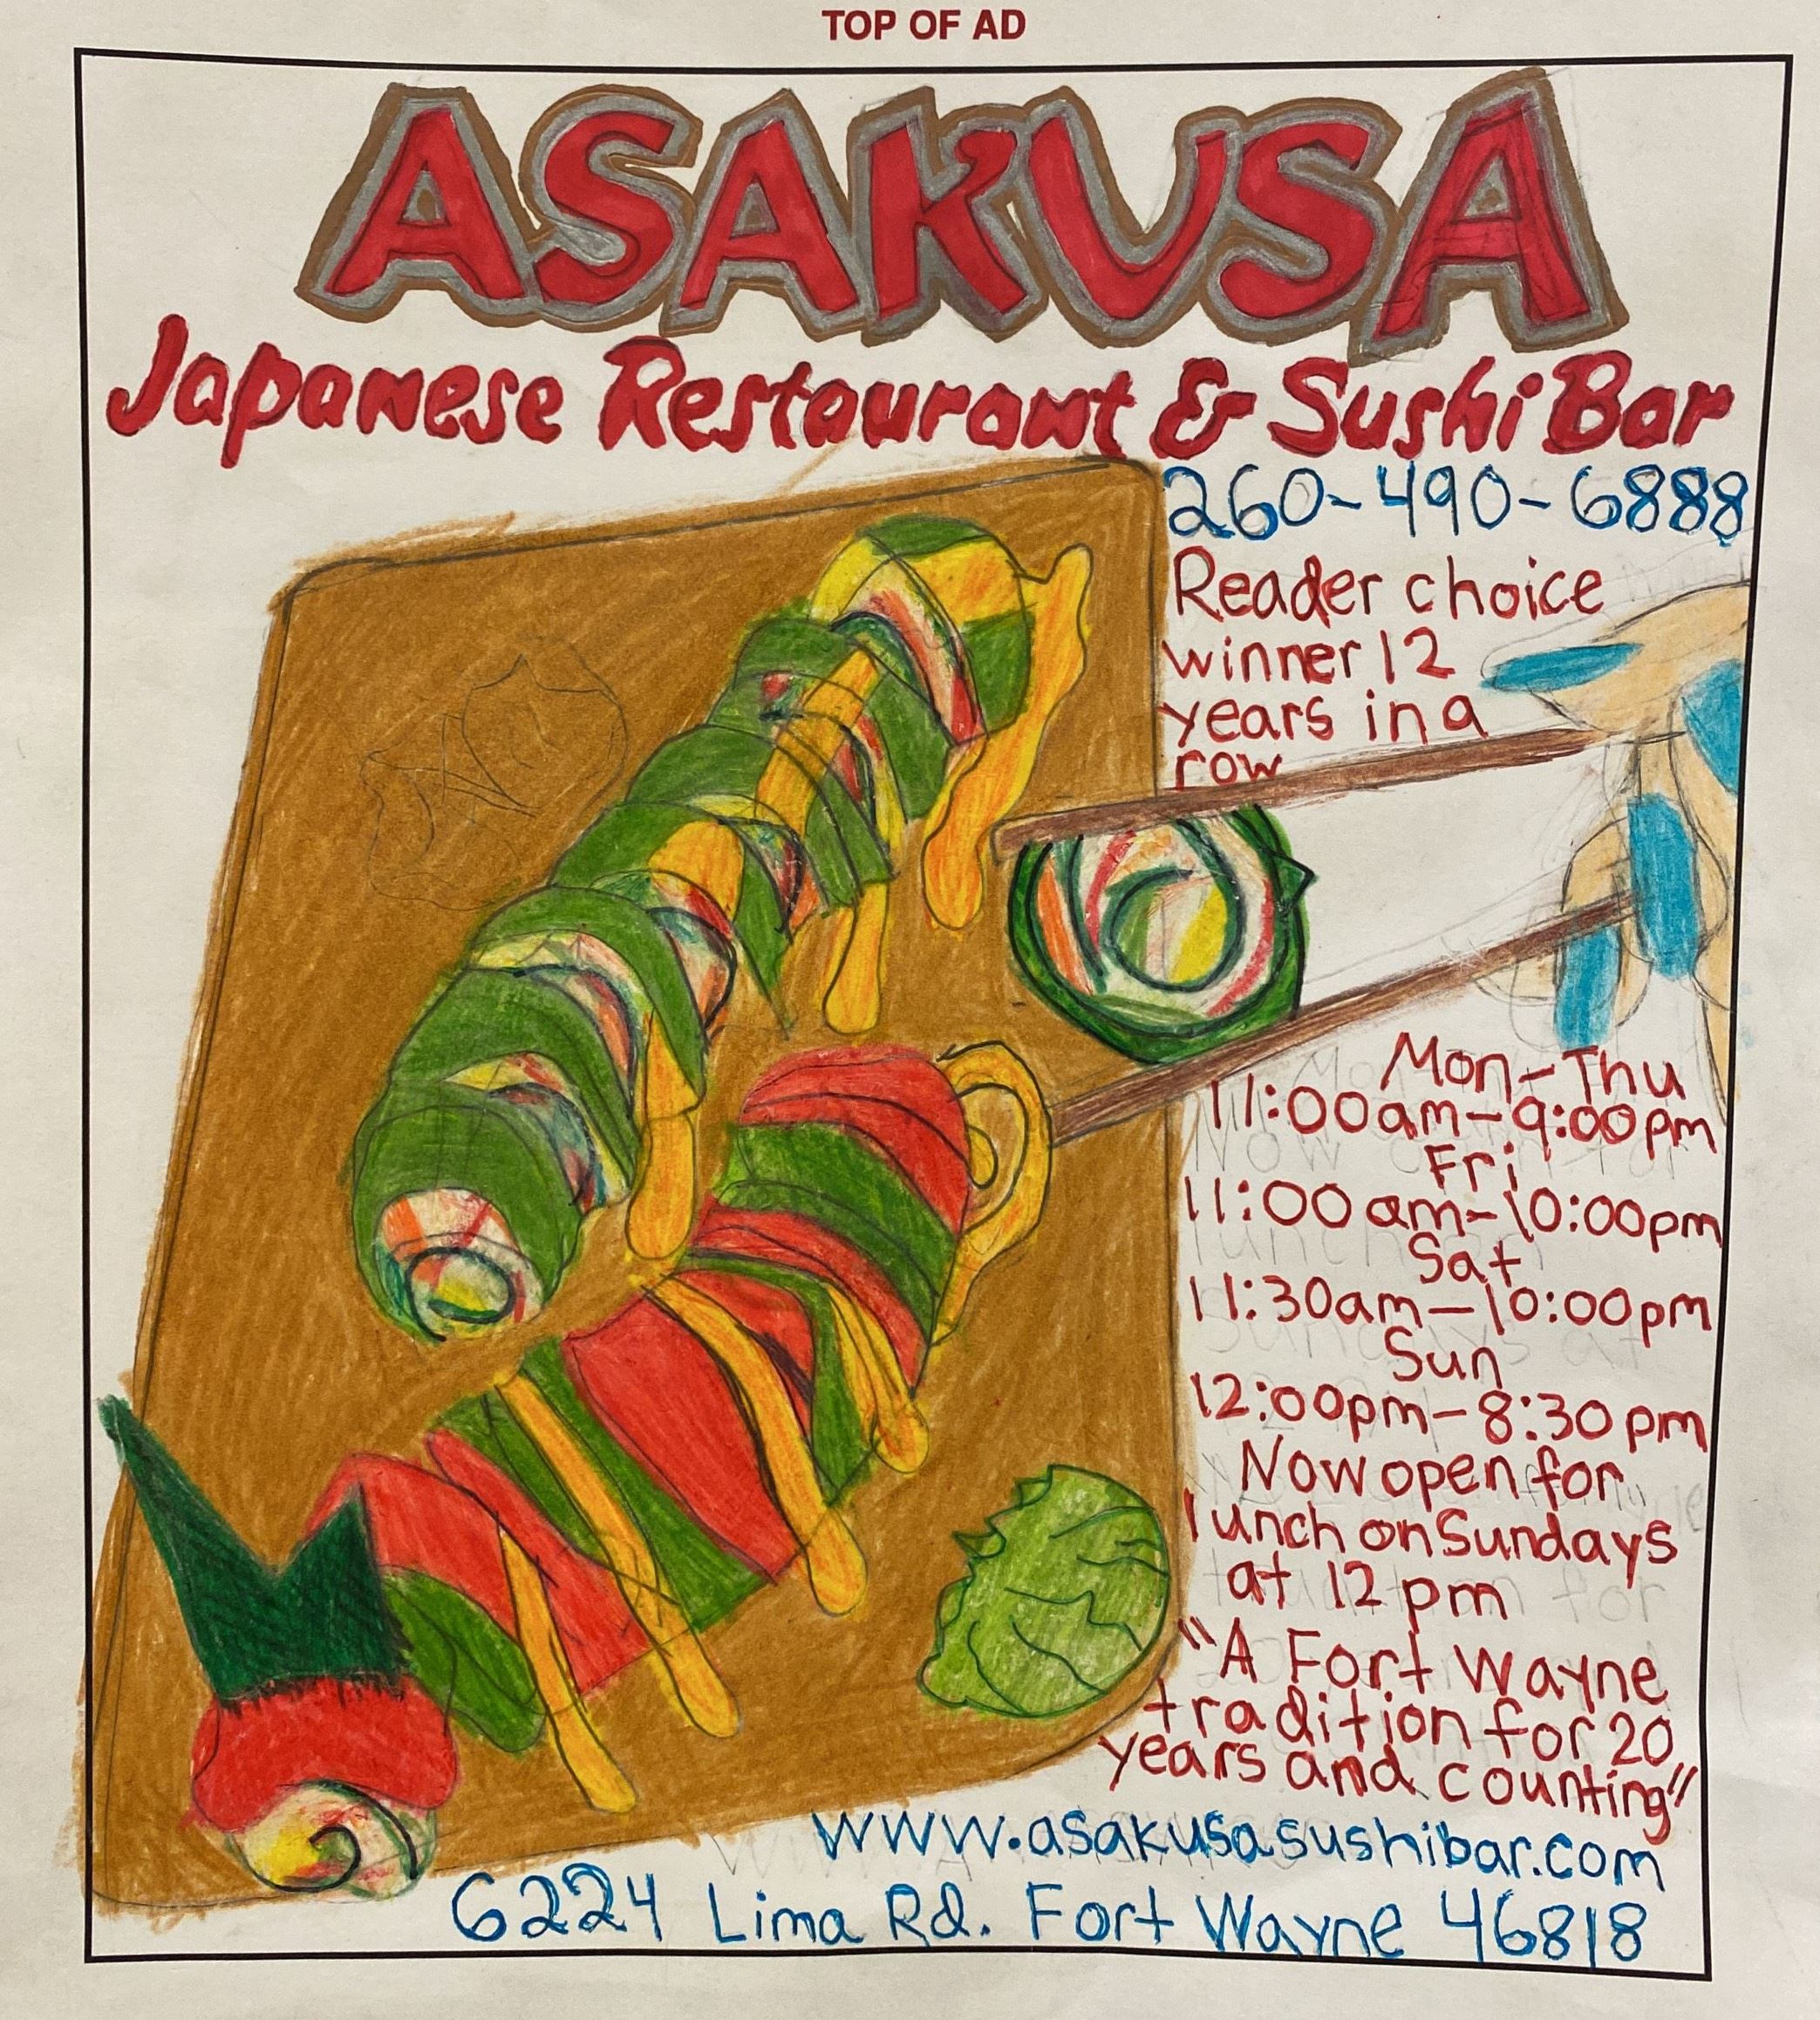 TOP OF AD
ASAKUSA
Japanese Restaurant & Sushi Bar
260-490-6888
Reader choice
winner 12
years in a
row
Mon-Thu
11:00am-9:00pm
Fri
11:00am-10:00pm
Sat
11:30am-10:00pm
Sun
12:00pm-8:30pm
Now open for
lunch on Sundays
at 12pm
"A Fort Wayne
tradition for 20
years and counting"
www.asakusasushibar.com
6224 Lima Rd. Fort Wayne 46818